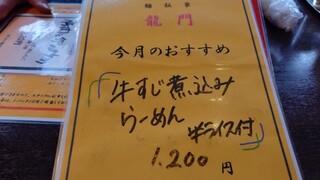 麺飯家
龍門
今月のおすすめ
「牛すじ煮込み
らーめん
半ライス付」
1.200円